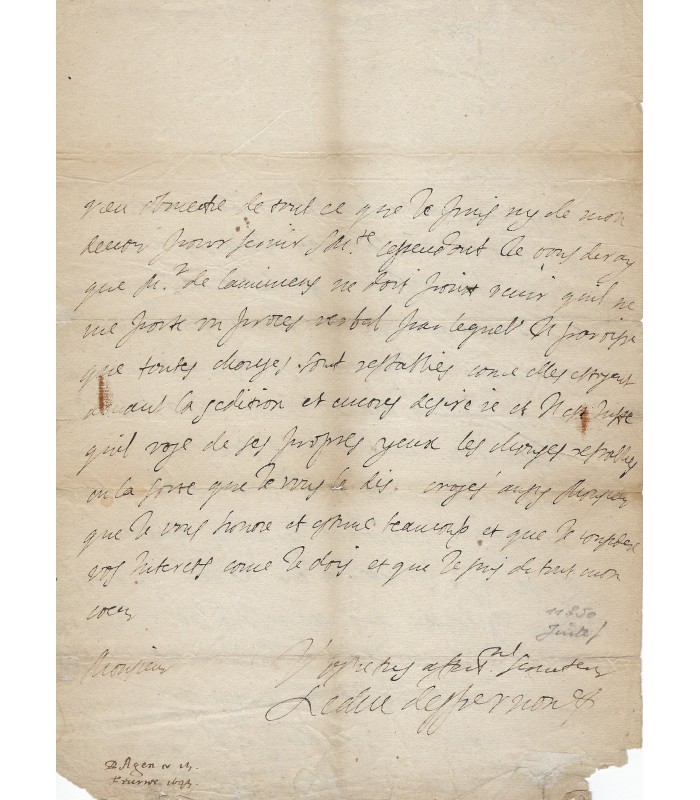 rien obmectre de tout ce que Je puis ny de mon
devoir pour servir sa Ma.te cependant Je vous diray
que M.r de ne doit point venir quil ne
me porte un proces verbal par lequel Il paroisse
que toutes choses sont restablies come elles estoyent
avant la sedition et encores desire ie et Il est Juste
quil voye de ses propres yeux les choses restablies
en la sorte que Je vous le dis. croyes aussy Monsieur
que Je vous honore et estime beaucoup et que Je considere
vos Interests come Je dois et que Je suis de tout mon
coeur
Monsieur
V.re tres affect.né serviteur
Le duc despernon
D Agen ce
1635